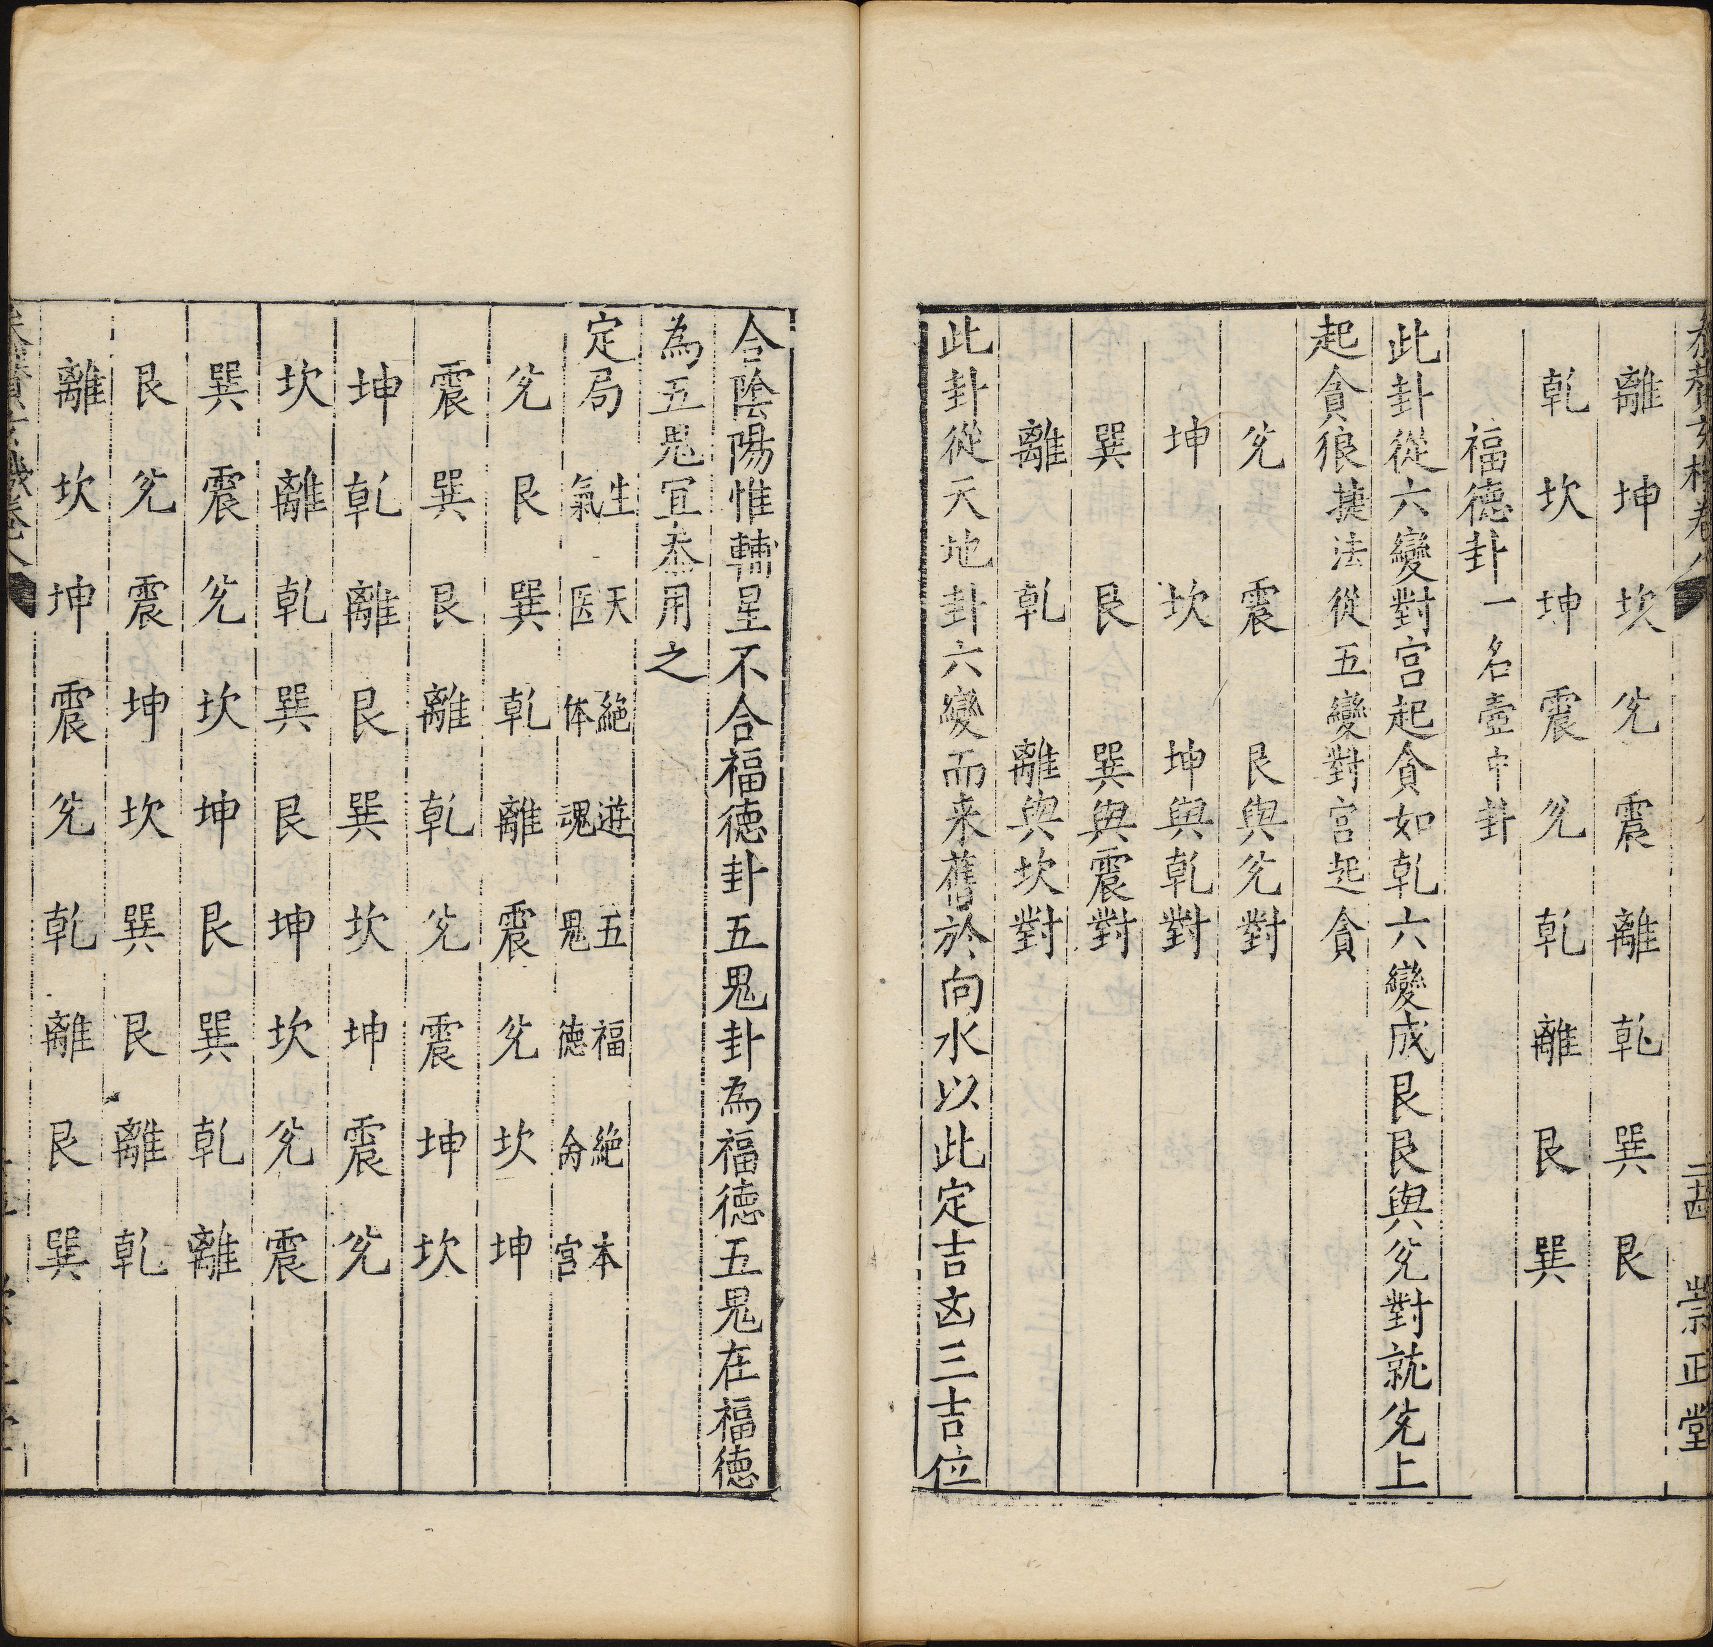 離坤坎兊震離乹巽艮
乹坎坤震兊乹離艮巽
福德卦一名壼中卦
此卦從六變對宮起貪如乹六變成艮艮與兊對就兊上
起貪狼捷法從五變對宮起貪
兊震艮與兊對
坤坎坤與乹對
巽艮巽與震對
離乹離與坎對
此卦從天地卦六變而来舊於向水以此定吉凶三吉位
合陰陽惟輔星不合福德卦五鬼卦為福德五鬼在福德
為五鬼宜叅用之
定局生氣天医絶体遊魂五鬼福德絶命本宮
兊艮巽乹離震兊坎坤
震巽艮離乹兊震坤坎
坤乹離艮巽坎坤震兊
坎離乹巽艮坤坎兊震
巽震兊坎坤艮巽乹離
艮兊震坤坎巽艮離乹
離坎坤震兊乹離艮巽
崇正堂